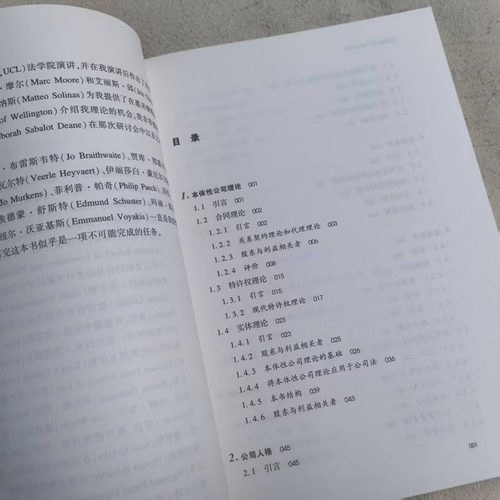 ,UCL)法学院演讲,并在我演讲后
·摩尔(Marc Moore)和艾丽斯·
纳斯(Matteo Solinas)为我提供了在
of Wellington)介绍我理论的机会,
borah Sabalot Deane)在那次研讨会中
·布雷斯韦特(Jo Braithwaite)、贾
瓦尔特(Veerle Heyvaert)、伊丽莎白·
Jo Murkens)、菲利普·帕奇(Philip Paech)、
埃德蒙·舒斯特(Edmund Schuster)、玛丽
纽尔·沃亚基斯(Emmanuel Voyakis)一直
完这本书似乎是一项不可能完成的任务。
目 录
1. 本体性公司理论 001
1.1 引言 001
1.2 合同理论 002
1.2.1 引言 002
1.2.2 关系契约理论和代理理论 002
1.2.3 股东与利益相关者 006
1.2.4 评价 008
1.3 特许权理论 015
1.3.1 引言 015
1.3.2 现代特许权理论 017
1.4 实体理论 023
1.4.1 引言 023
1.4.2 股东与利益相关者 023
1.4.3 本体性公司理论的基础 026
1.4.4 将本体性公司理论应用于公司法 036
1.4.5 本书结构 039
1.4.6 股东与利益相关者 043
2. 公司人格 045
2.1 引言 045
001